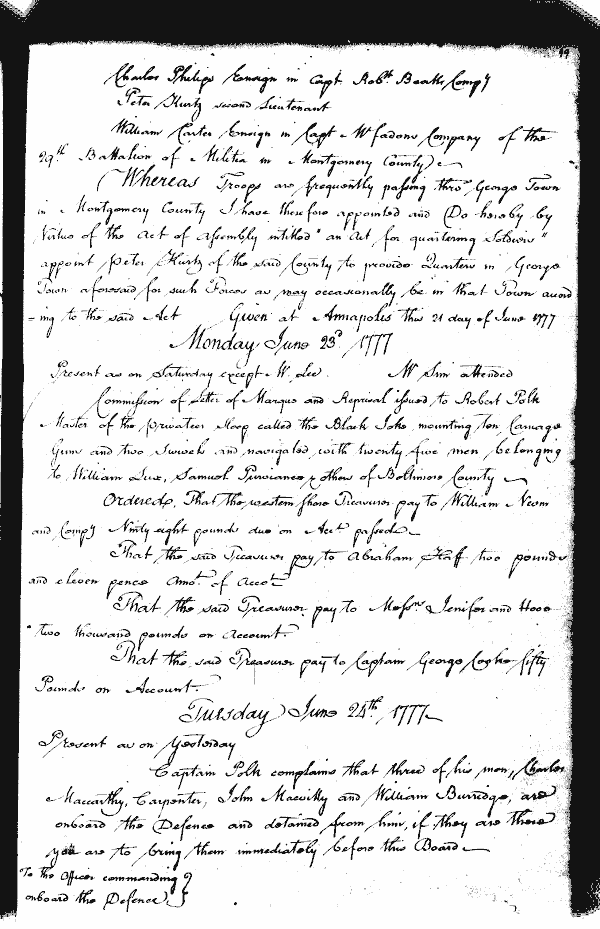 19
Charles Philips Ensign in Capt Robt Bealls Compy
Peter Kurtz second Lieutenant
William Carter Ensign in Capt McFadons Company of the
29th Battalion of Militia in Montgomery County
Whereas Troops are frequently passing thro George Town
in Montgomery County I have therefore appointed and Do hereby by
Virtue of the Act of Assembly intitled "an Act for quartering Soldiers"
appoint Peter Kurtz of the said County to provide Quarters in George
Town aforesaid for such Forces as may occasionally be in that Town accord
=ing to the said Act Given at Annapolis this 21 day of June 1777
Monday June 23d 1777
Present as on Saturday except W. Lee. Mr Sim attended
Commission of Letter of Marque and Reprisal issued to Robert Polk
Master of the privateer Sloop called the Black Joke mounting ten Carriage
Guns and two Swivels and navigated with twenty five men belonging
to William Lux, Samuel Purviance & others of Baltimore County
Ordered, That the western shore Treasurer pay to William
and Compy Ninty eight pounds due on Acct passed
That the said Treasurer pay to Abraham Haff two pounds
and eleven pence Amot of Accot
That the said Treasurer pay to Messrs Jenifer and Hooe
two thousand pounds on Account.
That the said Treasurer pay to Captain George Cooke fifty
Pounds on Account.
Tuesday June 24th 1777
Present as on Yesterday
Captain Polk complains that three of his men, Charles
Maccarthy, Carpenter, John and William Burridge, are
onboard the Defence and detained from him, if they are there
you are to bring them immediately before this Board
To the Officer commanding }
onboard the Defence. }